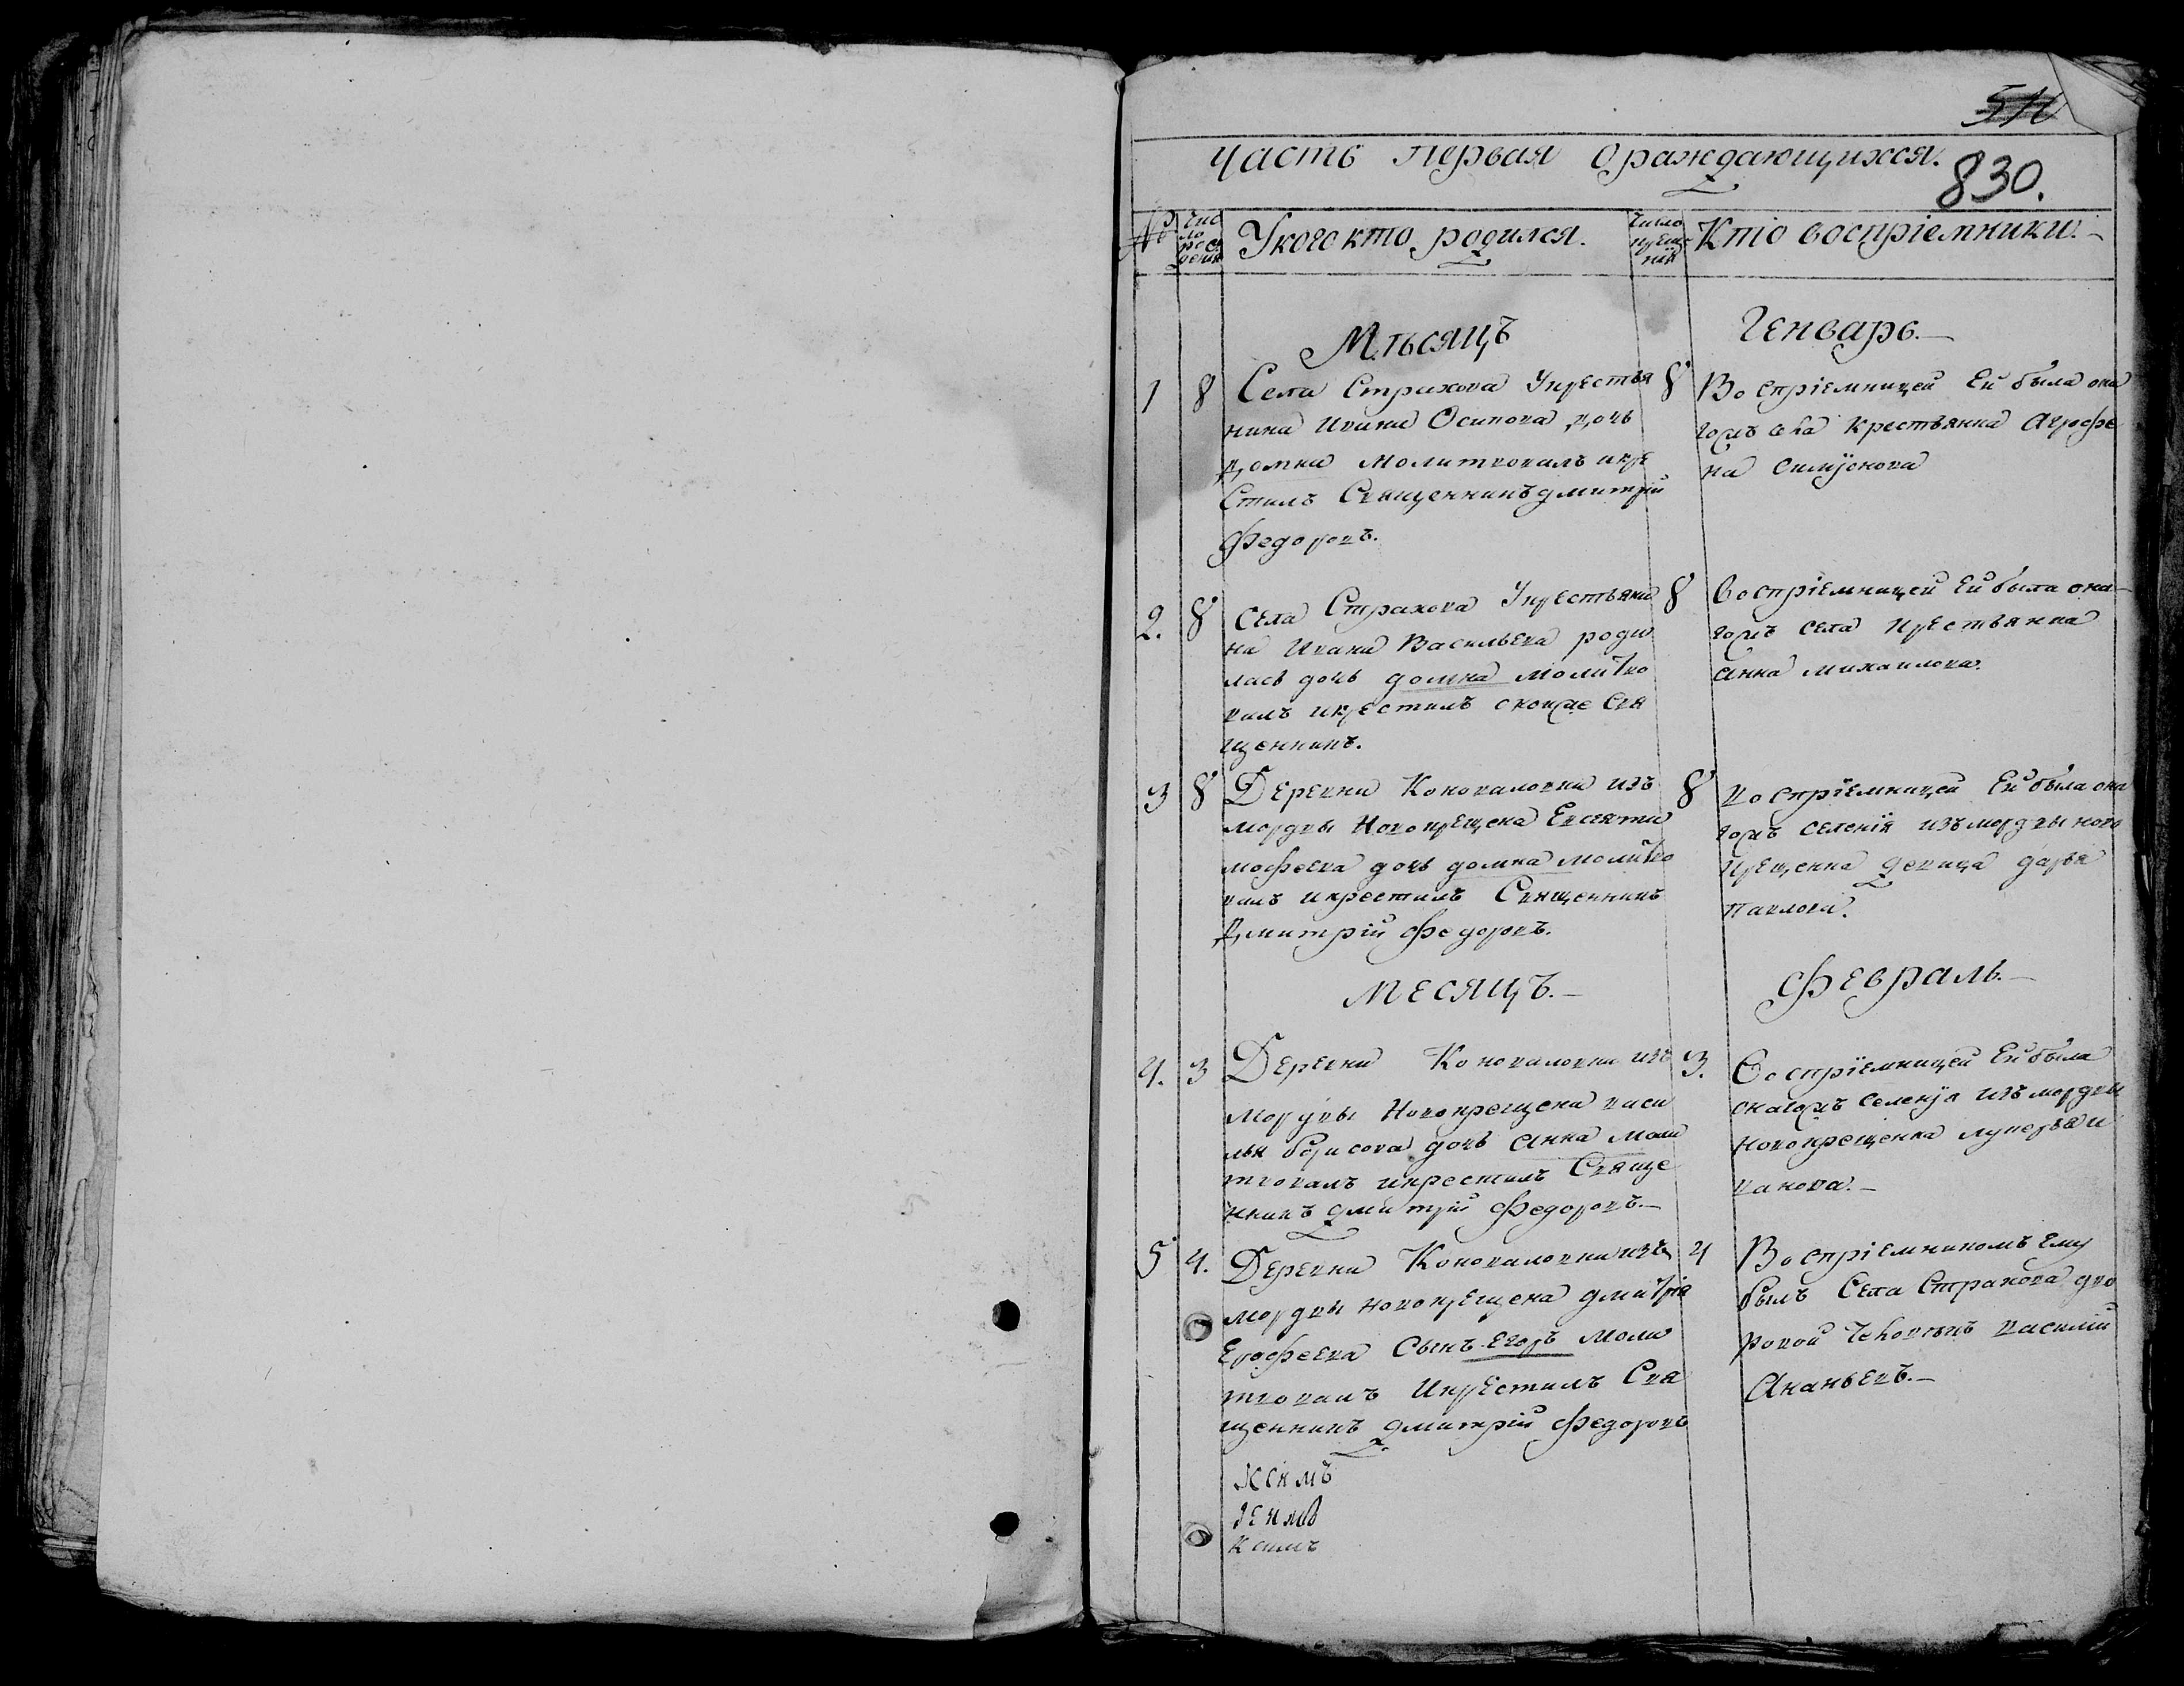 830.
Часть первая Ораждающихся.
№
Чис
ло
рож
дения
У кого кто родился.
Число
креще
нія
Кто воспріемники.
Мѣсяцъ
Генварь.
1
8
Села Страхова Укрестья
нина Ивана Осипова дочь
домна молитвовалъ икре
стилъ Священникъ дмитрій
Федоровъ.
8
Воспріемницей Ей была она
гожъ села крестьянка Агрофе
на
2.
8
Села Страхова Укрестьяни
на Ивана Васильева роди
лась дочь домна молитво
валъ икрестилъ Свя
щенникъ.
8
Воспріемницей Ей была она
гожъ села крестьянка
Анна михаилова.
3
8
Деревни Коноваловки изъ
мордвы Новокрещена Евсея тим
мофеева дочь домна молитво
валъ икрестилъ Священникъ
Дмитрій Федоровъ.
8
воспріемницей Ей была она
гожъ селенія изъ мордвы ново
крещенка девица дарья
павлова.
Месяцъ.
Февраль.
4.
3
Деревни Коноваловки изъ
мордвы Новокрещена васи
лья Борисова дочь Анна моли
твовалъ икрестилъ Свяще
нникъ дмитрій Федоровъ.
3.
Воспріемницей Ей была
онагожъ селенія изъ мордвы
новокрещенка лукерья и
ванова.
5
4.
Деревни Коноваловки изъ
мордвы новокрещена дмитрія
Ерофеева Сынъ Егоръ моли
твовалъ Икрестилъ Свя
щенникъ дмитрій Федоровъ
4
Воспріемникомъ Ему
былъ Села Страхова дво
ровой Человѣкъ василий
Ананьевъ.